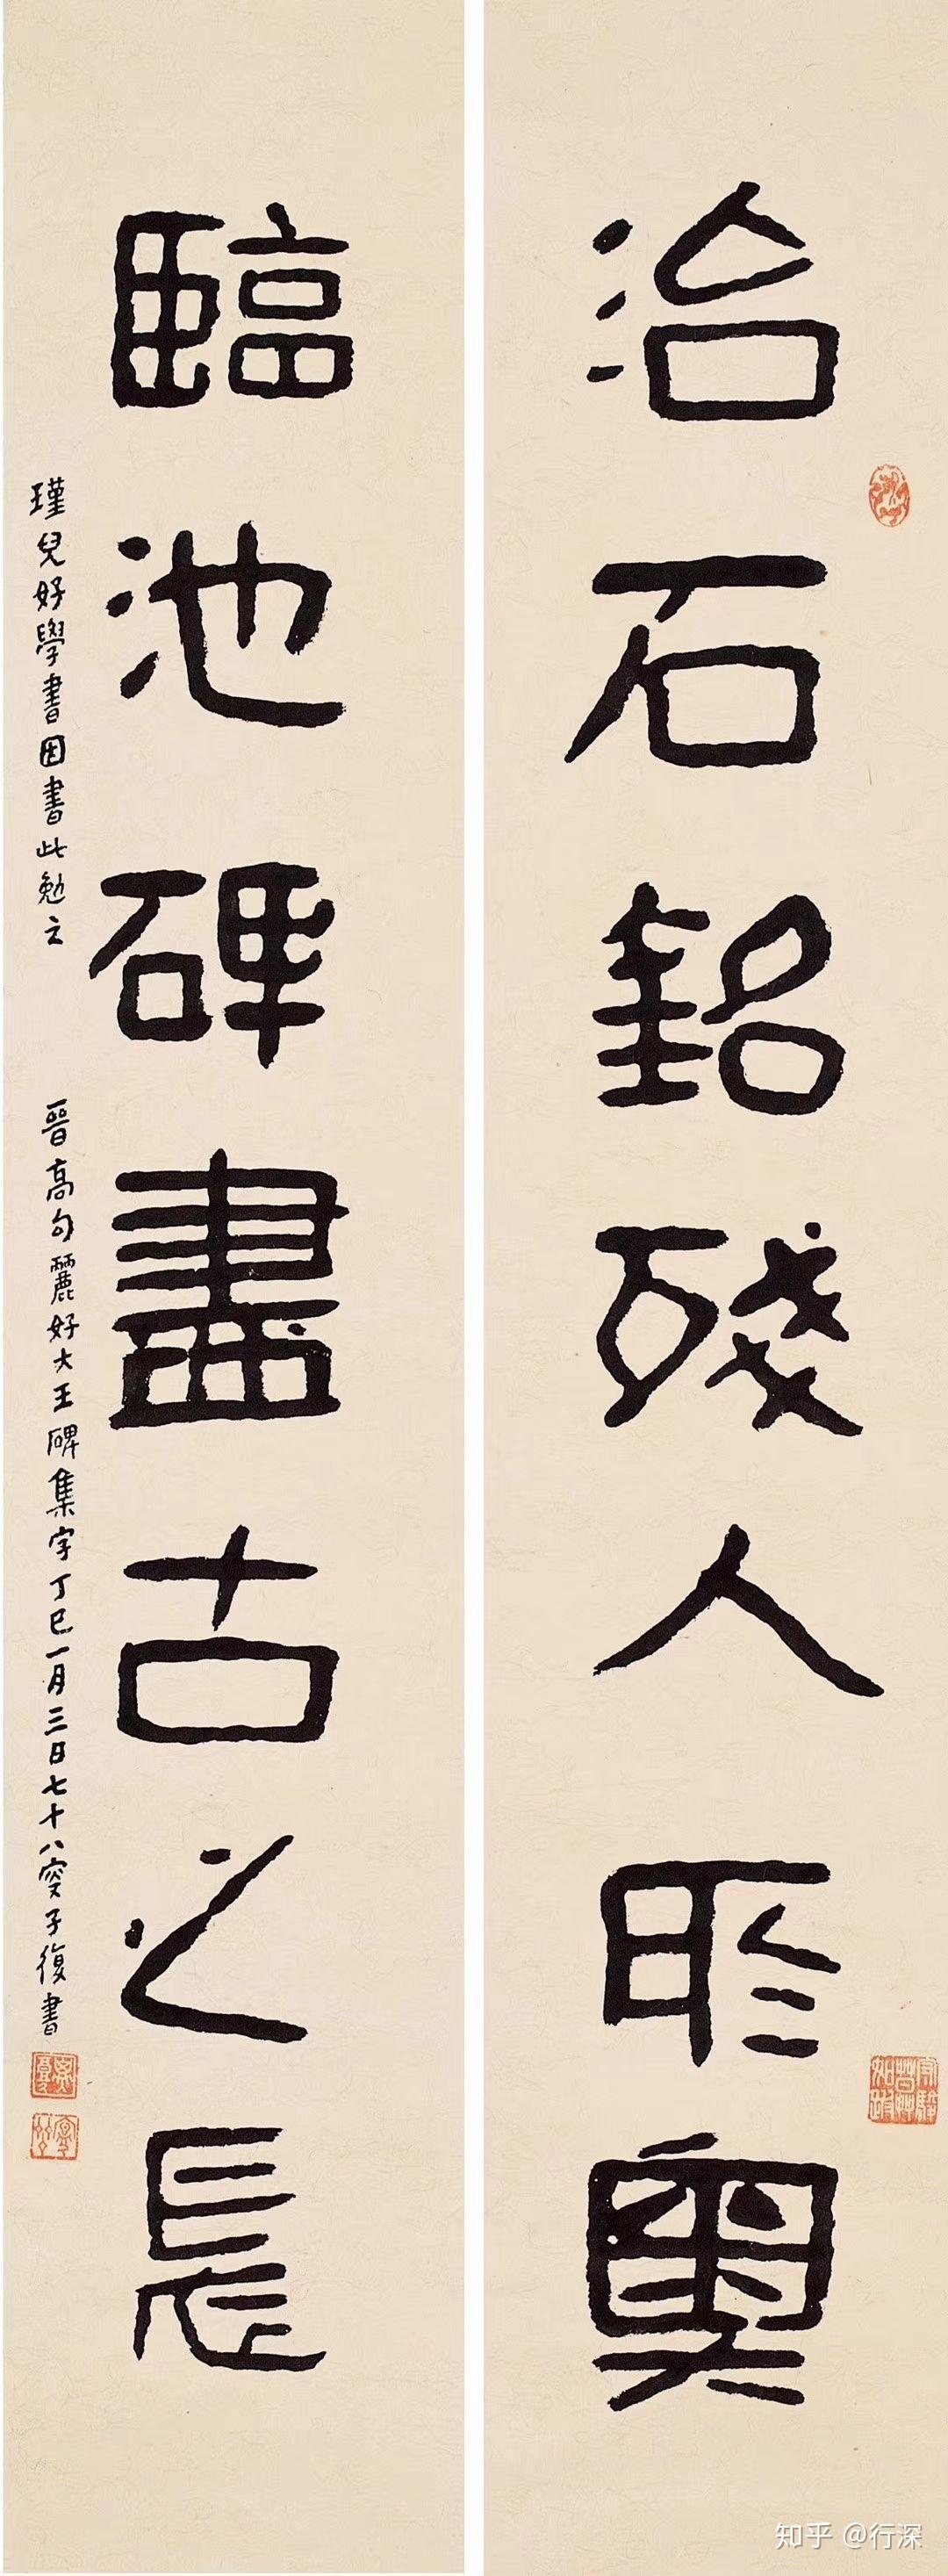 治石銘殘人所奧
臨池碑盡古之長
瑾兒好學書因書此勉之
晉高句麗好大王碑集字丁巳一月三日七十八叟子復書
知乎 @行深